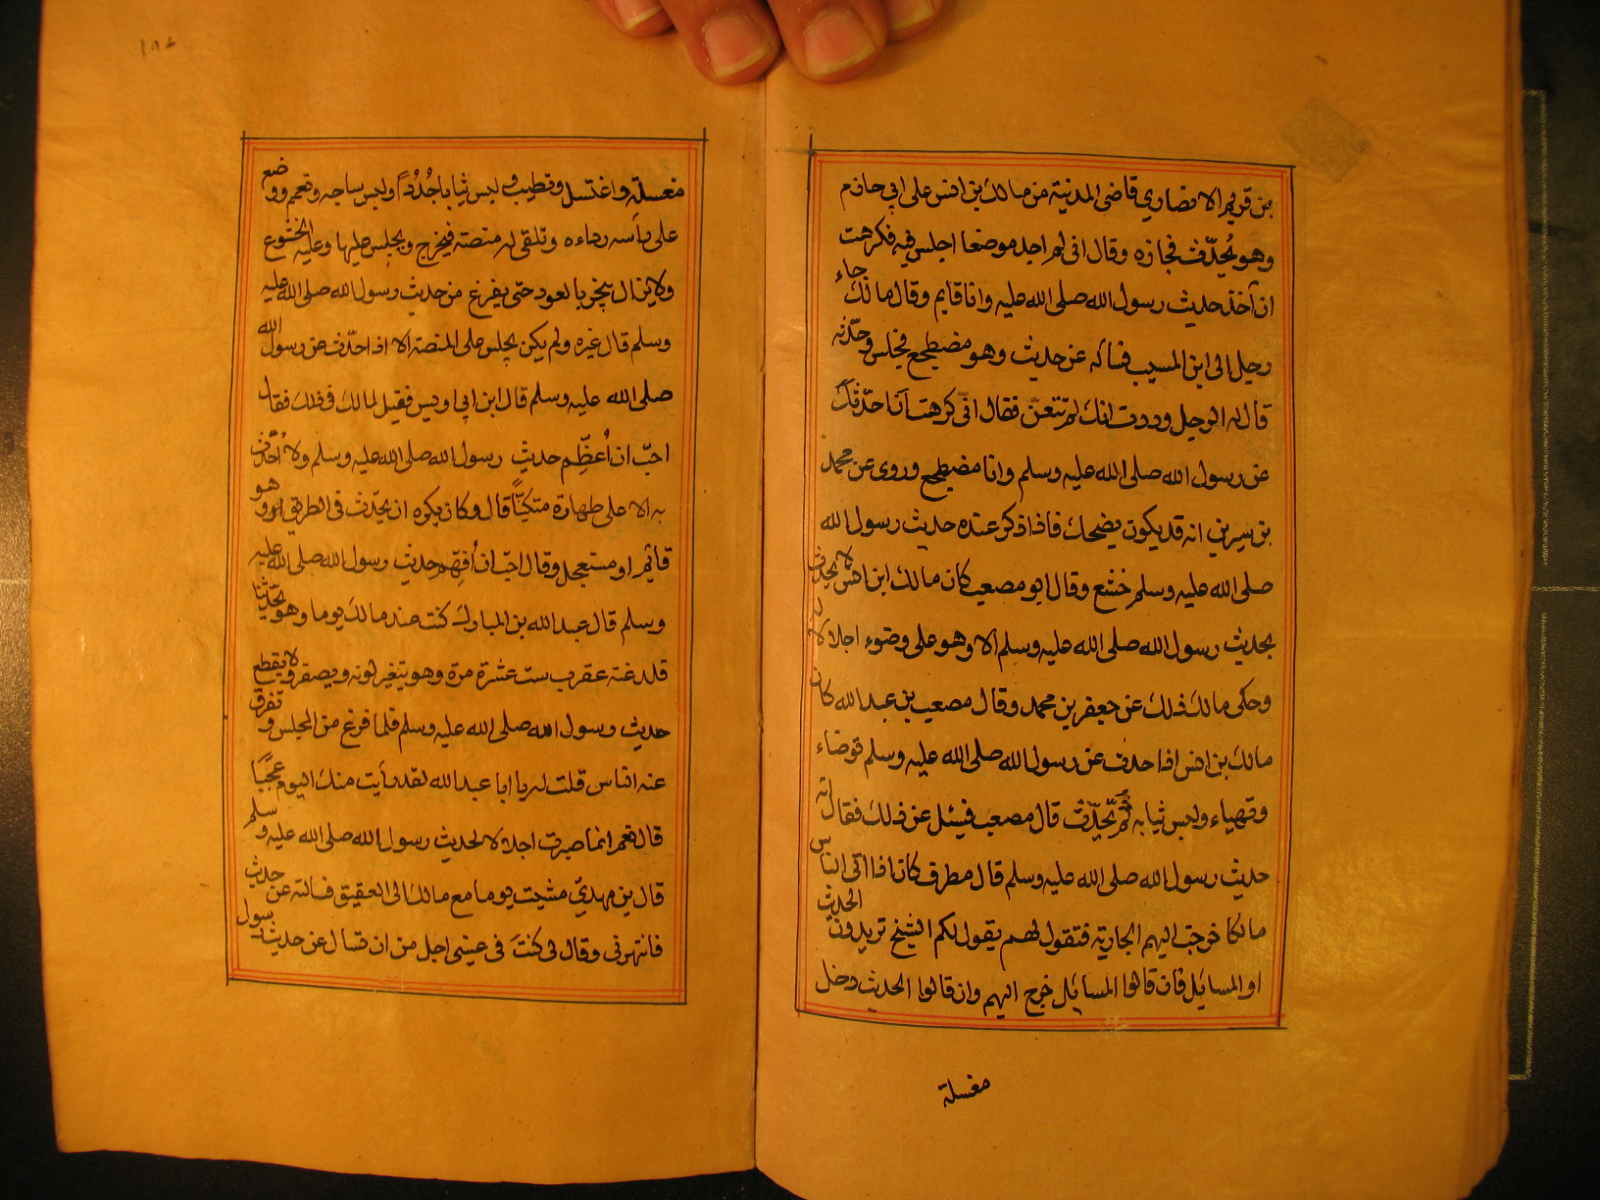 بن قريم الانصاري قاضي المدنية من مالك بن انس على ابي حازم
وهو يُحدّث فجازه وقال اني لم اجد موضعا اجلس فيه فكرهت
ان آخذ حديث رسول الله صلى الله عليه وانا قايم وقال مالك جاء
رجل الى ابن المسيب فسأله عن حديث وهو مضطجع فجلس وحدّثه
قال له الرجل وددت انك لم تتعنّ فقال انّي كرهت ان احدّثك
عن رسول الله صلى الله عليه وسلم وانا مضطجع وروى عن محمد
بن سيرين انه قد يكون يضحك فاذا ذكر عنده حديث رسول الله
صلى الله عليه وسلم خشع وقال ابو مصعب كان مالك ابن انس لا يحدث
بحديث رسول الله صلى الله عليه وسلم الا وهو على وضوء اجلالا له
وحكى مالك ذلك عن جعفر بن محمد وقال مصعب بن عبد الله كان
مالك بن انس اذا حدث عن رسول الله صلى الله عليه وسلم توضاء
وتهياء ولبس ثيابه ثم يحّدّث قال مصعب فيسئل عن ذلك فقال انه
حديث رسول الله صلى الله عليه وسلم قال مطرف كان اذا اتى الناس
مالكا خرجت اليهم الجارية فتقول لهم يقول لكم الشيخ تريدون الحديث
او المسايل فان قالوا المسايل خرج اليهم وان قالوا الحديث دخل
مغسلة
١٨٢
مغسلة واغتسل وتطيب ولبس ثيابا جُدُداً ولبس ساجه وتعمم ووضع
على رأسه رداءه وتلقى له منصة فيخرج ويجلس عليها وعليه الخشوع
ولا يزال يبخر بالعود حتى يفرغ من حديث رسول الله صلى الله عليه
وسلم قال غيره ولم يكن يجلس على المنصة الا اذا حدّث عن رسول الله
صلى الله عليه وسلم قال ابن ابي اويس فقيل لمالك في ذلك فقال
احبّ ان اُعظِّم حديث رسول الله صلى الله عليه وسلم ولا اُحدّث
به الا على طهارة متكيّناً قال وكان يكره ان يحدّث في الطريق او وهو
قائم او مستعجل وقال احبّ ان اُفهّم حديث رسول الله صلى الله عليه
وسلم قال عبد الله بن المبارك كنت عند مالك يوما وهو يحّدثنا
فلدغته عقرب ست عشرة مرة وهو يتغير لونه ويصفر ولا يقطع
حديث رسول الله صلى الله عليه وسلم فلما فرغ من المجلس وتفرق
عنه الناس قلت له يا ابا عبد الله لقد رأيت منك اليوم عجبًا
قال نعم انما صبرت اجلالا لحديث رسول الله صلى الله عليه وسلم
قال بن مهديّ مشيت يوما مع مالك الى العقيق فسالته عن حديث
فانتهرني وقال لي كنتَ في عيني اجل من ان تسال عن حديث رسول